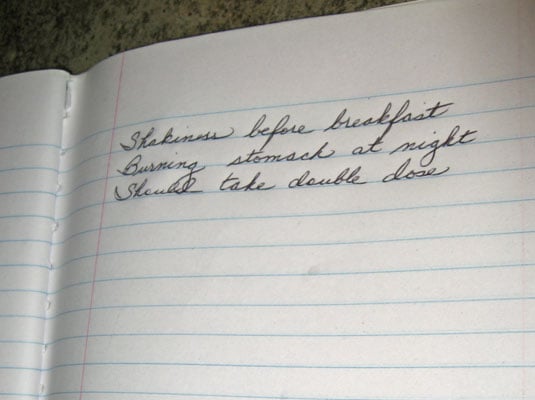 Shakiness before breakfast
Burning stomach at night
Should take double dose